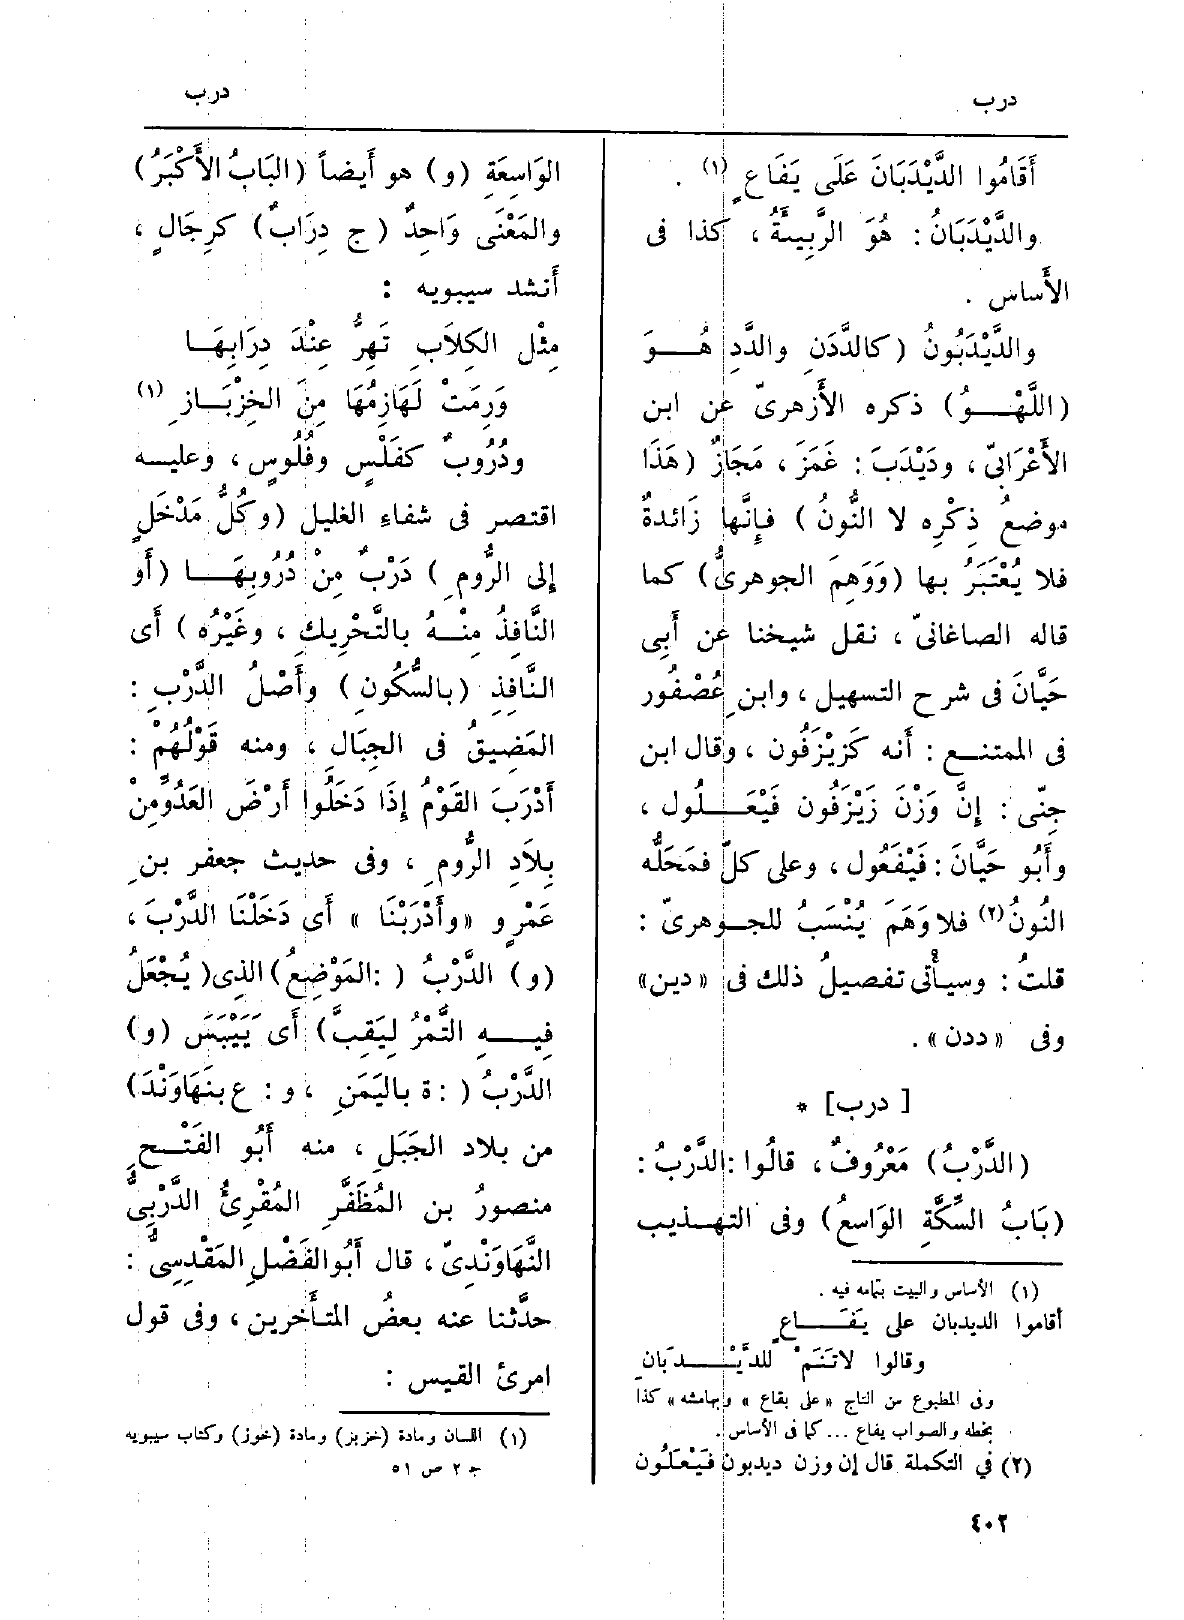 درب
درب
أَقَامُوا الدَّيْدَبَانَ عَلَى يَفَاعٍ (١) .
والدَّيْدَبَانُ : هُوَ الرَّبِيئَةُ ، كذا فى
الأَساس .
والدَّيْدَبُونُ (كالدَّدَنِ والدَّدِ هُـــوَ
(اللَّهْـــوُ) ذكره الأَزهرىّ عن ابن
الأَعْرَابِىّ ، ودَيْدَبَ : غَمَزَ ، مَجَازٌ (هَذَا
موضعُ ذِكْرِه لا النُّونُ) فإِنَّها زَائدةٌ
فلا يُعْتَبَرُ بها (وَوَهِمَ الجوهرىُّ) كما
قاله الصاغانىّ ، نقل شيخنا عن أَبِى
حَيَّانَ فى شرح التسهيل ، وابن عُصْفُور
فى الممتنع : أَنه كَزَيْزَفُون ، وقال ابن
جِنّى : إِنَّ وَزْنَ زَيْزَفُون فَيْعَـــلُول ،
وأَبُو حَيَّانَ : فَيْفَعُول ، وعلى كلّ فمَحَلُّه
النُونُ (٢) فلا وَهَمَ يُنْسَبُ للجــوهرىّ :
قلتُ : وسيأْتى تفصيلُ ذلك فى «دين»
وفى «ددن» .
[ درب] *
(الدَّرْبُ) مَعْرُوفٌ ، قالُوا : الدَّرْبُ :
(بَابُ السِّكَّةِ الوَاسعُ) وفى التهـذيب
(١) الأساس والبيت بتمامه فيه .
أقاموا الديدبان على يَفَـــاعٍ
وقالوا لاتَنَمْ للدَّيْـــدَبَانِ
وفى المطبوع من التاج «على بقاع » وبهامشه «كذا
بخطه والصواب يفاع ... كما فى الأساس .
(٢) في التكملة قال إن وزن ديدبون فَيْعَلُون
الوَاسِعَةِ (و) هو أَيضاً (البَابُ الأَكْبَرُ)
والمَعْنَى وَاحِدٌ (ج دِرَابٌ) كرِجَالٍ ،
أَنشد سيبويه :
مِثْل الكِلاَبِ تَهِرُّ عِنْدَ دِرَابِهَـا
وَرِمَتْ لَهَازِمُهَا مِنَ الخِزْبَــازِ (١)
ودُرُوبٌ كفَلْسٍ وفُلُوسٍ ، وعليـه
اقتصر فى شفاءِ الغليل (وكُلُّ مَدْخَلٍ
إِلى الرُّومِ ) دَرْبٌ مِنْ دُرُوبِهَـــا (أَو
النَّافِذُ مِنْـــهُ بالتَّحْرِيكِ ، وغَيْرُه ) أَى
النَّافِذِ (بالسُّكُونِ) وأَصْلُ الدَّرْبِ :
المَضِيقُ فى الجِبَالِ ، ومنه قَوْلُهُمْ :
أَدْرَبَ القَوْمُ إِذَا دَخَلُوا أَرْضَ العَدُوِّ مِنْ
بِلاَدِ الرُّومِ ، وفى حديث جعفر بنِ
عَمْرٍو «وأَدْرَبْنَا » أَى دَخَلْنَا الدَّرْبَ ،
(و) الدَّرْبُ ( :المَوْضِعُ) الذِى( يُجْعَلُ
فِيـــهِ التَّمْرُ لِيَقِبَّ) أَى يَيْبَسَ (و)
الدَّرْبُ ( : ة باليَمَنِ ، و : ع بِنَهَاوَنْدَ)
من بلاد الجَبَلِ ، منه أَبُو الفَتْــحِ
منصورُ بن المُظَفَّرِ المُقْرِئُ الدَّرْبِىُّ
النَّهَاوَنْدِىّ ، قال أَبُوالفَضْلِ المَقْدِسِىُّ :
حدَّثنا عنه بعضُ المتأَخرين ، وفى قول
امرئ القيس :
(١) اللسان ومادة (خزبز) ومادة (خوز) وكتاب سيبويه
ج ٢ ص ٥١
٤٠٢